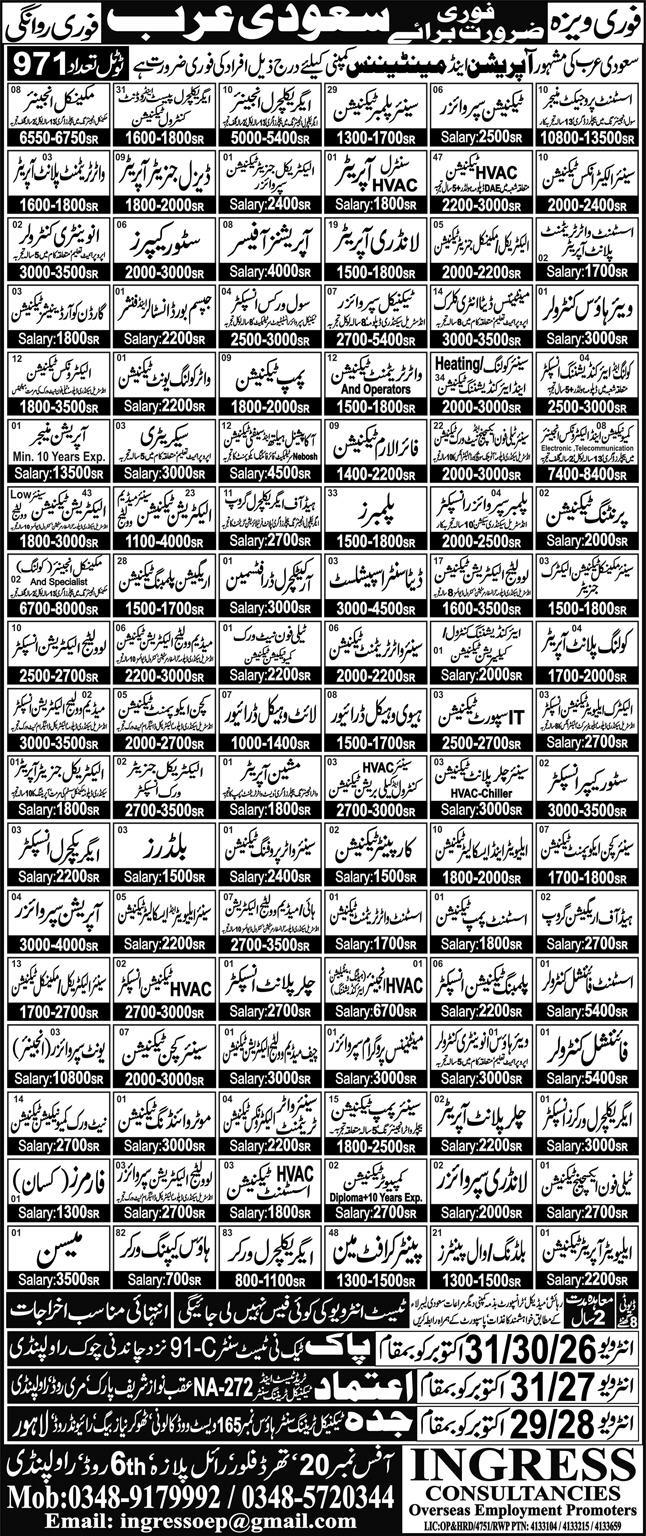 فوری ویزہ
فوری ضرورت برائے
سعودی عرب
فوری روانگی
سعودی عرب کی مشہور آپریشن اینڈ مینٹیننس کمپنی کیلئے درج ذیل افراد کی فوری ضرورت ہے
ٹوٹل تعداد 971
اسسٹنٹ پروجیکٹ منیجر 10
10800-13500SR
ٹیکنیشن سپروائزر 06
Salary:2500SR
سینئر پلمبر ٹیکنیشن 29
1300-1700SR
ایگریکلچرل انجینئر 10
5000-5400SR
ایگریکلچرل پیسٹ اینڈ ڈونٹ کنٹرول ٹیکنیشن 31
1600-1800SR
مکینیکل انجینئر 08
6550-6750SR
سینئر الیکٹرانکس ٹیکنیشن 10
2000-2400SR
HVAC ٹیکنیشن 47
2200-3000SR
سنٹرل HVAC آپریٹر 01
Salary:1800SR
الیکٹریکل جنریٹر ٹیکنیشن سپروائزر 01
Salary:2400SR
ڈیزل جنریٹر آپریٹر 09
1800-2000SR
واٹر ٹریٹمنٹ پلانٹ آپریٹر 03
1600-1800SR
اسسٹنٹ واٹر ٹریٹمنٹ پلانٹ آپریٹر 02
Salary:1700SR
الیکٹریکل/مکینیکل جنریٹر ٹیکنیشن 05
2000-2200SR
لانڈری آپریٹر 19
1500-1800SR
آپریشنز آفیسر 08
Salary:4000SR
سٹور کیپرز 06
2000-3000SR
انوینٹری کنٹرولر 02
3000-3500SR
ویئر ہاؤس کنٹرولر 01
Salary:3000SR
مینٹیننس ڈیٹا انٹری کلرک 14
3000-3500SR
ٹیکنیکل سپروائزر 07
2700-5400SR
سول ورکس انسپکٹر 04
2500-3000SR
جپسم بورڈ انسٹالر اینڈ فنشر 01
Salary:2200SR
گارڈن کوآرڈینیٹر ٹیکنیشن 03
Salary:1800SR
کولنگ اینڈ ایئر کنڈیشننگ انسپکٹر 04
2500-3000SR
سینئر کولنگ/Heating اینڈ ایئر کنڈیشننگ ٹیکنیشن 34
2000-3000SR
واٹر ٹریٹمنٹ ٹیکنیشن And Operators 12
1500-1800SR
پمپ ٹیکنیشن 09
1800-2000SR
واٹر کولنگ یونٹ ٹیکنیشن 01
Salary:2200SR
الیکٹرونکس ٹیکنیشن 12
1800-3500SR
08 Electronic ,Telecommunication
7400-8400SR
سینئر ٹیلی فون ایکسچینج نیٹ ورک ٹیکنیشن 22
2000-3000SR
فائر الارم ٹیکنیشن 09
1400-2200SR
آکوپیشنل ہیلتھ اینڈ سیفٹی ٹیکنیشن 12 Nebosh
Salary:4500SR
سیکریٹری 03
Salary:3000SR
آپریشن منیجر 01
Min. 10 Years Exp.
Salary:13500SR
پرنٹنگ ٹیکنیشن 02
Salary:2000SR
پلمبر سپروائزر انسپکٹر 04
2000-2500SR
پلمبرز 33
1500-1800SR
ہیڈ آف ایگریکلچرل گروپ 11
Salary:2700SR
الیکٹریشن ٹیکنیشن سینئر میڈیم وولٹیج 23
1100-4000SR
الیکٹریشن ٹیکنیشن سینئر Low وولٹیج 43
1800-3000SR
سینئر مکینیکل ٹیکنیشن الیکٹرک جنریٹر 03
1500-1800SR
لو وولٹیج الیکٹریشن ٹیکنیشن 17
1600-3500SR
ڈیٹا سنٹر اسپیشلسٹ 03
3000-4500SR
آرکیٹیکچرل ڈرافٹسمین 01
Salary:3000SR
اریگیشن پلمبنگ ٹیکنیشن 28
1500-1700SR
مکینیکل انجینئر (کولنگ) And Specialist 02
6700-8000SR
کولنگ پلانٹ آپریٹر 04
1700-2000SR
ایئر کنڈیشننگ کنٹرول/کیلبریشن ٹیکنیشن 01
Salary:2000SR
سینئر واٹر ٹریٹمنٹ ٹیکنیشن 06
2000-2200SR
ٹیلی فون نیٹ ورک کمیونیکیشن ٹیکنیشن 01
Salary:2200SR
میڈیم وولٹیج الیکٹریشن ٹیکنیشن 06
2200-3000SR
لو وولٹیج الیکٹریشن انسپکٹر 10
2500-2700SR
الیکٹرک ایلیویٹر ٹیکنیشن انسپکٹر 01
Salary:2700SR
IT سپورٹ ٹیکنیشن 03
2500-2700SR
ہیوی وہیکل ڈرائیور 08
1500-1700SR
لائٹ وہیکل ڈرائیور 07
1000-1400SR
کچن ایکوپمنٹ ٹیکنیشن 05
2000-2700SR
میڈیم وولٹیج الیکٹریشن انسپکٹر 02
3000-3500SR
سٹور کیپر انسپکٹر 02
3000-3500SR
سینئر چلر پلانٹ ٹیکنیشن HVAC-Chiller 03
Salary:3000SR
سینئر HVAC کنٹرول/کیلی بریشن ٹیکنیشن 03
2700-3000SR
مشین آپریٹر 01
Salary:1800SR
الیکٹریکل جنریٹر ورک انسپکٹر 02
2700-3500SR
الیکٹریکل جنریٹر آپریٹر 01
Salary:1800SR
سینئر کچن ایکوپمنٹ ٹیکنیشن 07
1700-1800SR
ایلیویٹر اینڈ ایسکالیٹر ٹیکنیشن 10
1800-2000SR
کارپینٹر ٹیکنیشن 02
Salary:1800SR
سینئر واٹر پروفنگ ٹیکنیشن 01
Salary:2400SR
بلڈرز 03
Salary:1500SR
ایگریکچرل انسپکٹر 03
Salary:2200SR
ہیڈ آف اریگیشن گروپ 02
Salary:2700SR
اسسٹنٹ پمپ ٹیکنیشن 01
Salary:1800SR
اسسٹنٹ واٹر ٹریٹمنٹ ٹیکنیشن 01
Salary:1700SR
ہائی/میڈیم وولٹیج الیکٹریشن 07
2700-3500SR
سینئر ایلیویٹر اینڈ ایسکالیٹر ٹیکنیشن 05
Salary:2200SR
آپریشن سپروائزر 04
3000-4000SR
اسسٹنٹ فائنشل کنٹرولر 01
Salary:5400SR
پلمبنگ ٹیکنیشن انسپکٹر 06
Salary:2200SR
HVAC انجینئر 01
Salary:6700SR
چلر پلانٹ انسپکٹر 01
Salary:2700SR
HVAC ٹیکنیشن انسپکٹر 02
2700-3000SR
سینئر الیکٹریکل/مکینیکل ٹیکنیشن 13
1700-2700SR
فائنشل کنٹرولر 01
Salary:5400SR
ویئر ہاؤس انوینٹری کنٹرولر 01
Salary:3000SR
مینٹیننس پروگرام سپروائزر 01
Salary:3000SR
چیف میڈیم وولٹیج الیکٹریشن ٹیکنیشن 01
Salary:3000SR
سینئر کچن ٹیکنیشن 07
2000-3000SR
یونٹ سپروائزر (انجینئر) 03
Salary:10800SR
ایگریکلچرل ورکرز انسپکٹر 01
Salary:3000SR
چلر پلانٹ آپریٹر 02
Salary:1700SR
سینئر پمپ ٹیکنیشن 15
1800-2500SR
سینئر واٹر ٹریٹمنٹ الیکٹرونکس ٹیکنیشن 04
Salary:2200SR
موٹر وائنڈنگ ٹیکنیشن 01
Salary:3000SR
نیٹ ورک کمیونیکیشن ٹیکنیشن 14
Salary:2700SR
ٹیلی فون ایکسچینج ٹیکنیشن 01
Salary:2700SR
لانڈری سپروائزر 02
Salary:2000SR
کمپیوٹر ٹیکنیشن 02
Diploma+10 Years Exp.
Salary:2700SR
HVAC اسسٹنٹ ٹیکنیشن 03
Salary:1800SR
لو وولٹیج الیکٹریشن سپروائزر 03
Salary:2700SR
فارمرز (کسان) 01
Salary:1300SR
ایلیویٹر آپریٹر ٹیکنیشن 01
Salary:2200SR
بلڈنگ/وال پینٹرز 21
1300-1500SR
پینٹر کرافٹ مین 48
1300-1500SR
ایگریکلچرل ورکر 83
800-1100SR
ہاؤس کیپنگ ورکر 82
Salary:700SR
میسن 01
Salary:3500SR
ڈیوٹی 8 گھنٹے
معاہدہ مدت 2 سال
رہائش/میڈیکل/ٹرانسپورٹ بذمہ کمپنی دیگر مراعات سعودی لیبر لاء کے مطابق خواہشمند کاغذات/پاسپورٹ کے ہمراہ رابطہ کریں
ٹیسٹ انٹرویو کی کوئی فیس نہیں لی جائیگی
انتہائی مناسب اخراجات
انٹرویو 31/30/26 اکتوبر کو بمقام پاک ٹیک نی ٹیسٹ سنٹر C-91 نزد چاندنی چوک راولپنڈی
انٹرویو 31/27 اکتوبر کو بمقام اعتماد ٹریڈ ٹیسٹ اینڈ ٹیکنیکل ٹریننگ سنٹر NA-272 عقب نواز شریف پارک مری روڈ راولپنڈی
انٹرویو 29/28 اکتوبر کو بمقام جدہ ٹیکنیکل ٹریننگ سنٹر ہاؤس نمبر 165 ویسٹ ووڈ کالونی ٹھوکر نیاز بیگ رائیونڈ روڈ لاہور
INGRESS
CONSULTANCIES
Overseas Employment Promoters
LIC:OP&HRD/4751/RWP PTN: 4133104 / 4133215 / 4133659
آفس نمبر 20 تھرڈ فلور رائل پلازہ 6th روڈ راولپنڈی
Mob:0348-9179992 / 0348-5720344
Email: ingressoep@gmail.com